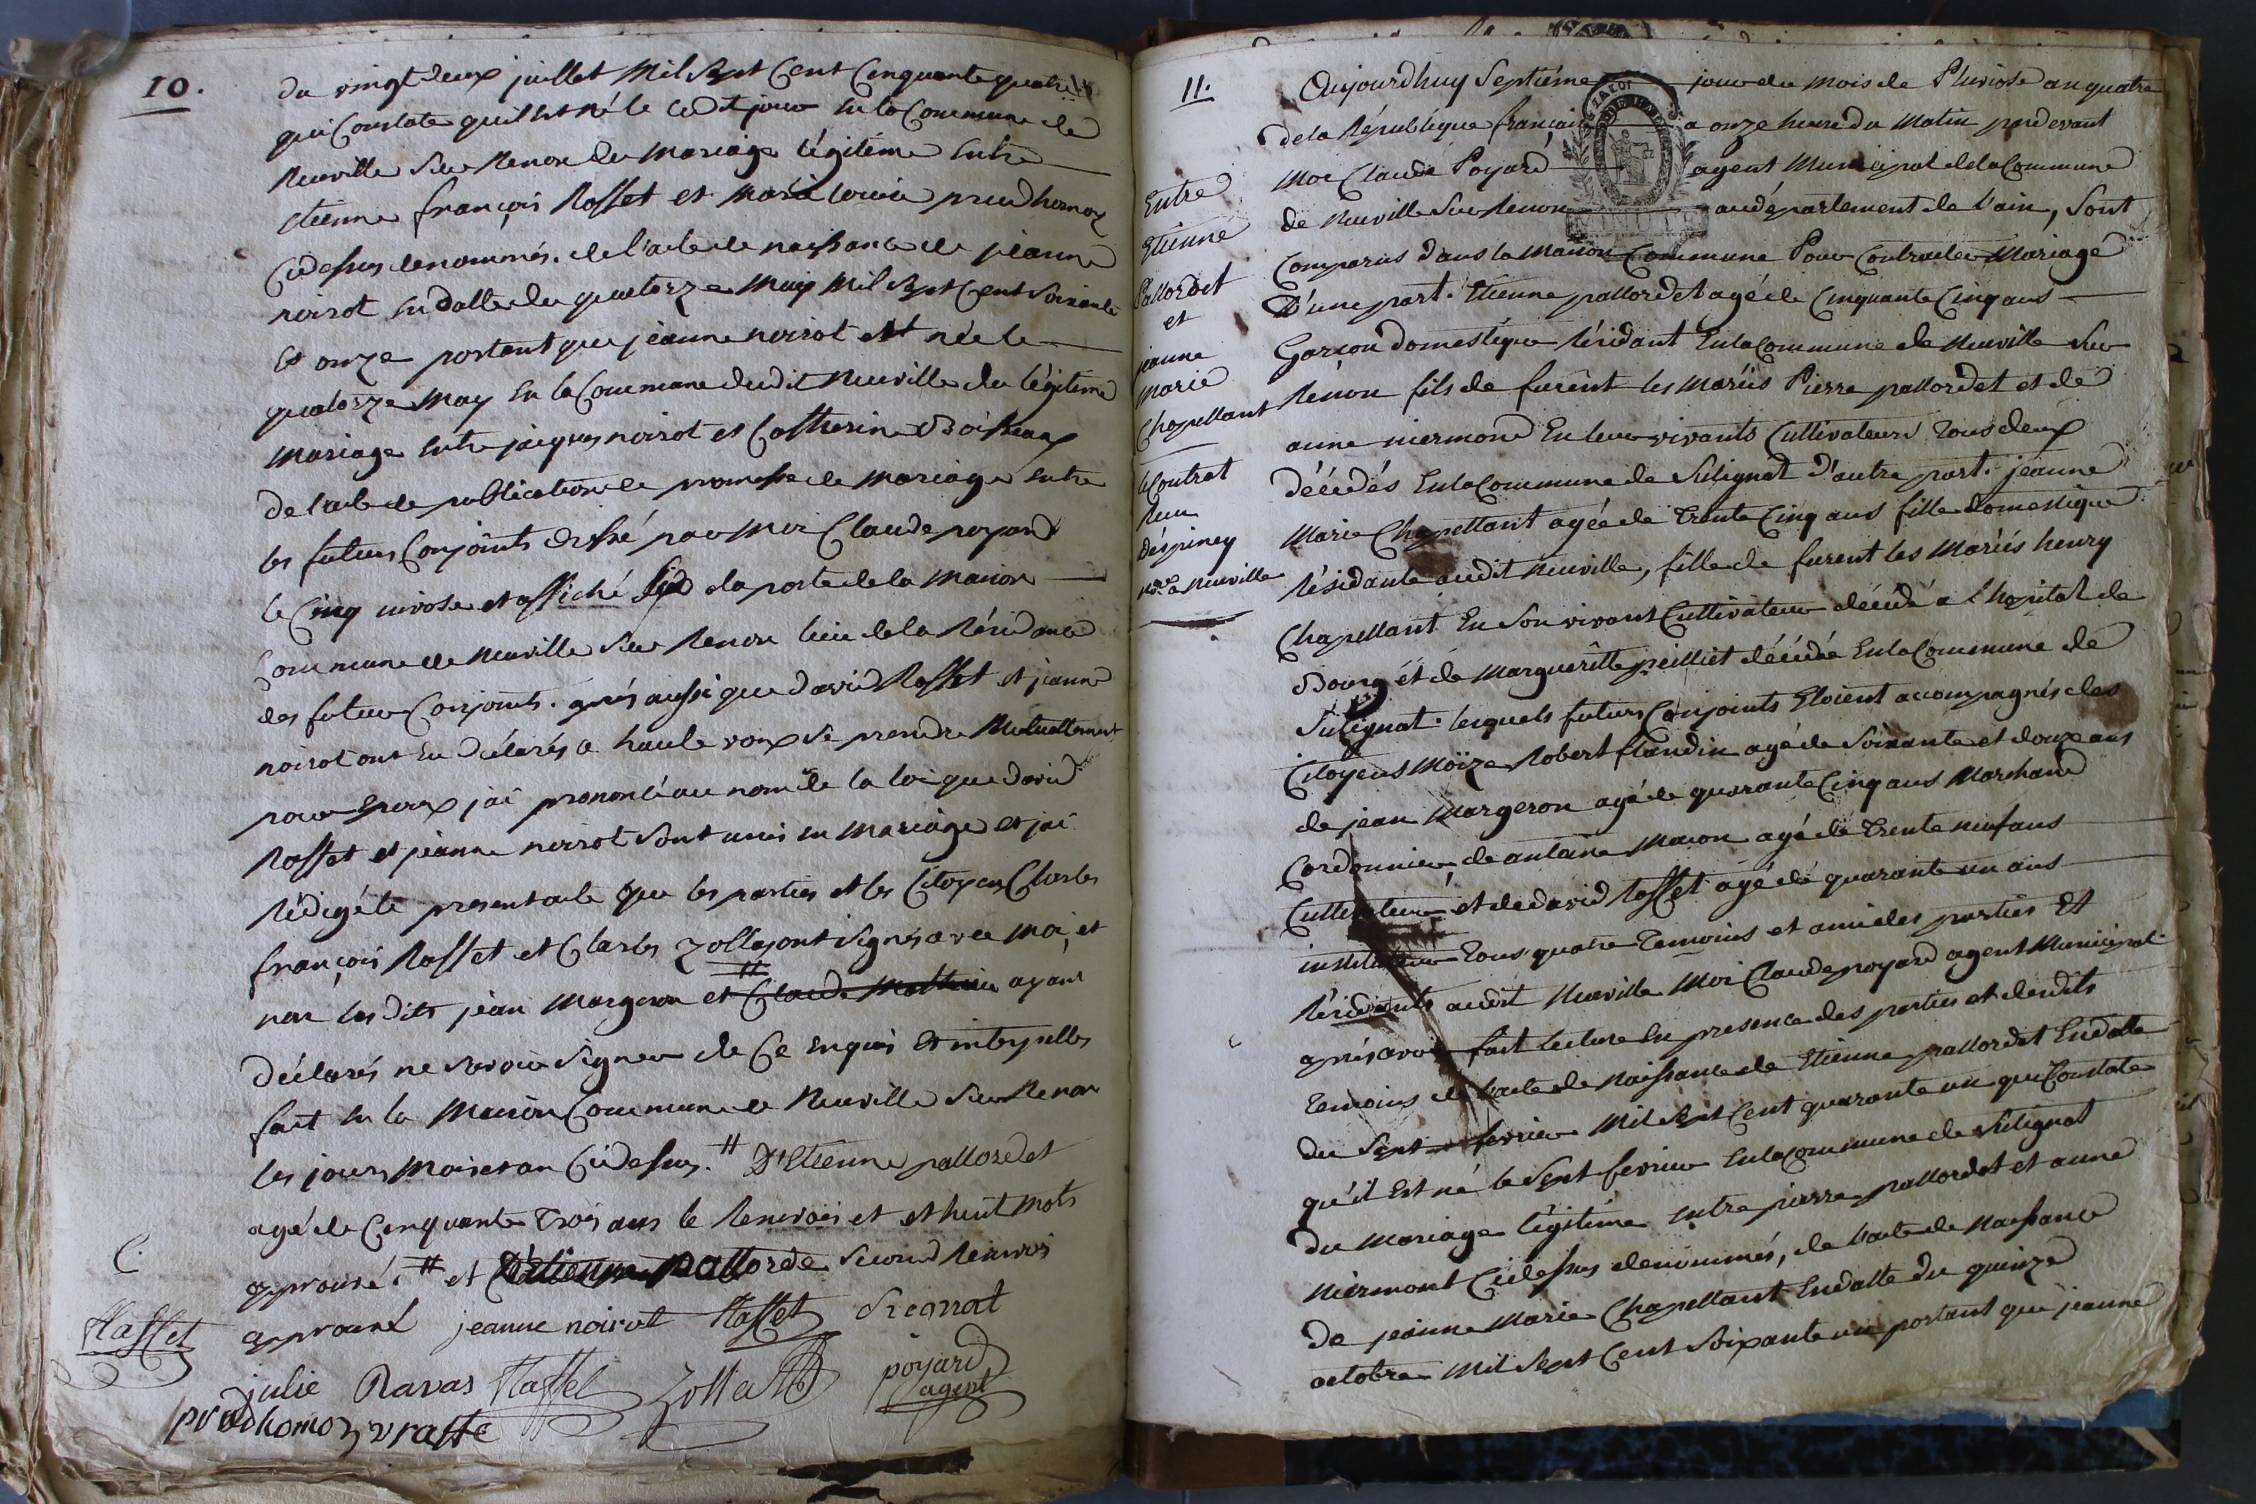 10.
du vingt deux juillet Mil Sept Cent Cinquante quatre
qui Constate quil Est Né le Cedit jour En la Commune de
Neuville Sur Renon du Mariage légitime Entre
Etienne françois Rasset et Marie louise prudhomoz
Cidessus denommés. de l'acte de naissance de jeanne
noirot En datte du quatorze May Mil Sept Cent Soixante
et onze portant que jeanne noirot Est née le
quatorze May En la Commune dudit Neuville du légitime
Mariage Entre jacques noirot et Catherine
De l'acte de publication de promesse de Mariage Entre
les futurs Conjoints dressé par Moi Claude poyard
le Cinq nivose et affiché a la porte de la Maison
Commune de Neuville Sur Renon lieu de la Résidence
des futurs Conjoints. après aussi que david Rasset et jeanne
noirot ont Eu déclarés a haute voix Se prendre Mutuellement
pour Epoux jai prononcé au nom de la loi que david
Rasset et jeanne noirot Sont unis en Mariage et jai
Rédigé le present acte que les parties et les Citoyens Charles
françois Rasset et Charles Zolla, ont Signés avec Moi, et
non les dits jean Margeron et Claude Mathieu ayant
déclarés ne Savoir Signer de Ce Enquis Et interpellés
fait En la Maison Commune de Neuville Sur Renon
les jours, Mois et an Cidessus. # D'Etienne pallordet
agé de Cinquante Trois ans le Renvois et et huit Mots
approuvé. # et D'étienne pallorde Second Renvois
approuvé jeanne noirot Rasset
C.
Rasset
julie Ravas Rasset Zolla poyard
agent
prudhomoz vrasse
11.
Entre
Etienne
Pallordet
et
jeanne
Marie
Chapellant
le Contrat
Reçu
Déspiney
nre a Neuville
Aujourdhuy Septième jour du Mois de Pluviose an quatre
de la République français a onze heure du Matin pardevant
Moi Claude Poyard agent Municipal de la Commune
de Neuville Sur Renon au département de l'ain, Sont
Comparus dans la Maison Commune Pour Contracter Mariage
D'une part. Etienne pallordet agé de Cinquante Cinq ans
Garçon domestique Résidant En la Commune de Neuville Sur
Rénon fils de furênt les Mariés Pierre pallordet et de
anne niermond En leur vivants Cultivateurs Tous deux
décédés En la Commune de Sulignat D'autre part. jeanne
Marie Chapellant agée de Trente Cinq ans fille domestique
Résidante audit Neuville, fille de furent les Mariés henry
Chapellant En Son vivant Cultivateur décédé a l'hopital de
Bourg et de Marguerîtte peilliet décédée En la Commune de
Sulignat. lesquels futurs Conjoints Etoient accompagnés des
Citoyens Moïze Robert flandin agé de Soixante et douze ans
de jean Margeron agé de quarante Cinq ans Marchand
Cordonnier, de antoine Macon agé de Trente neuf ans
Cultivateur et de david Rasset agé de quarante un ans
instituteur Tous quatre Temoins et ami des parties Et
Résidants audit Neuville Moi Claude poyard agent Municipal
après avoir fait lecture En presence des parties et desdits
Temoins de l'acte de Naissance de Etienne pallordet En datte
du Sept fevrier Mil Sept Cent quarante un qui Constate
qu'il Est né le Sept fevrier En la Commune de Sulignat
du Mariage légitime Entre pierre pallordet et anne
Niermont Cidessus denommés, de l'acte de Naissance
de jeanne Marie Chapellant En datte du quinze
octobre Mil Sept Cent Soixante un portant que jeanne